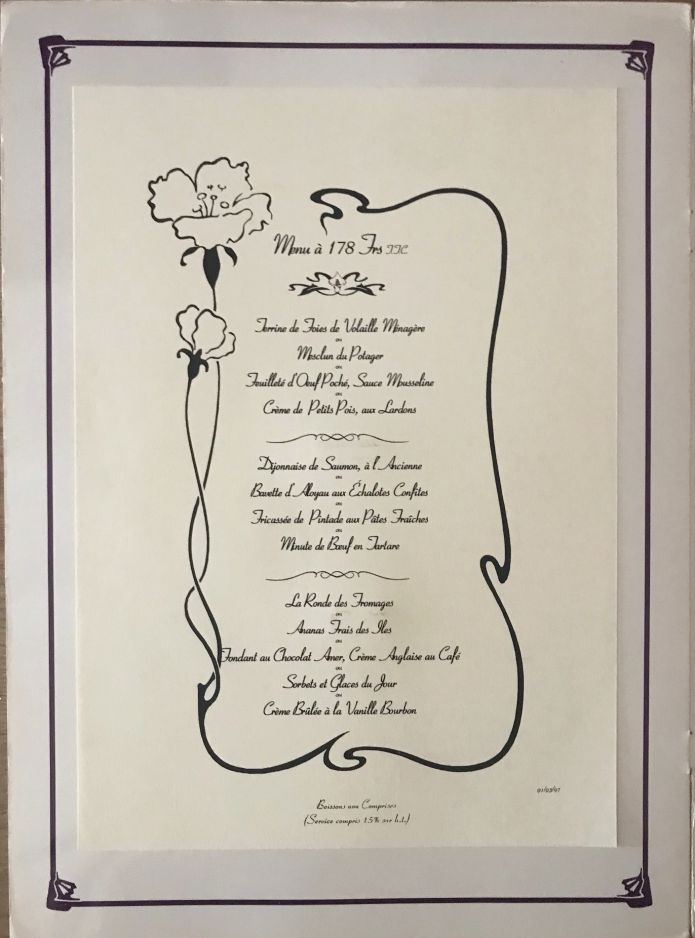 Menu à 178 Frs TTC
Terrine de Foies de Volaille Ménagère
ou
Mesclun du Potager
ou
Feuilleté d'Oeuf Poché, Sauce Mousseline
ou
Crème de Petits Pois, aux Lardons
Dijonnaise de Saumon, à l'Ancienne
ou
Bavette d'Aloyau aux Échalotes Confites
ou
Fricassée de Pintade aux Pâtes Fraîches
ou
Minute de Bœuf en Tartare
La Ronde des Fromages
ou
Ananas Frais des Iles
ou
Fondant au Chocolat Amer, Crème Anglaise au Café
ou
Sorbets et Glaces du Jour
ou
Crème Brûlée à la Vanille Bourbon
01/03/97
Boissons non Comprises
(Service compris 15% sur h.t.)